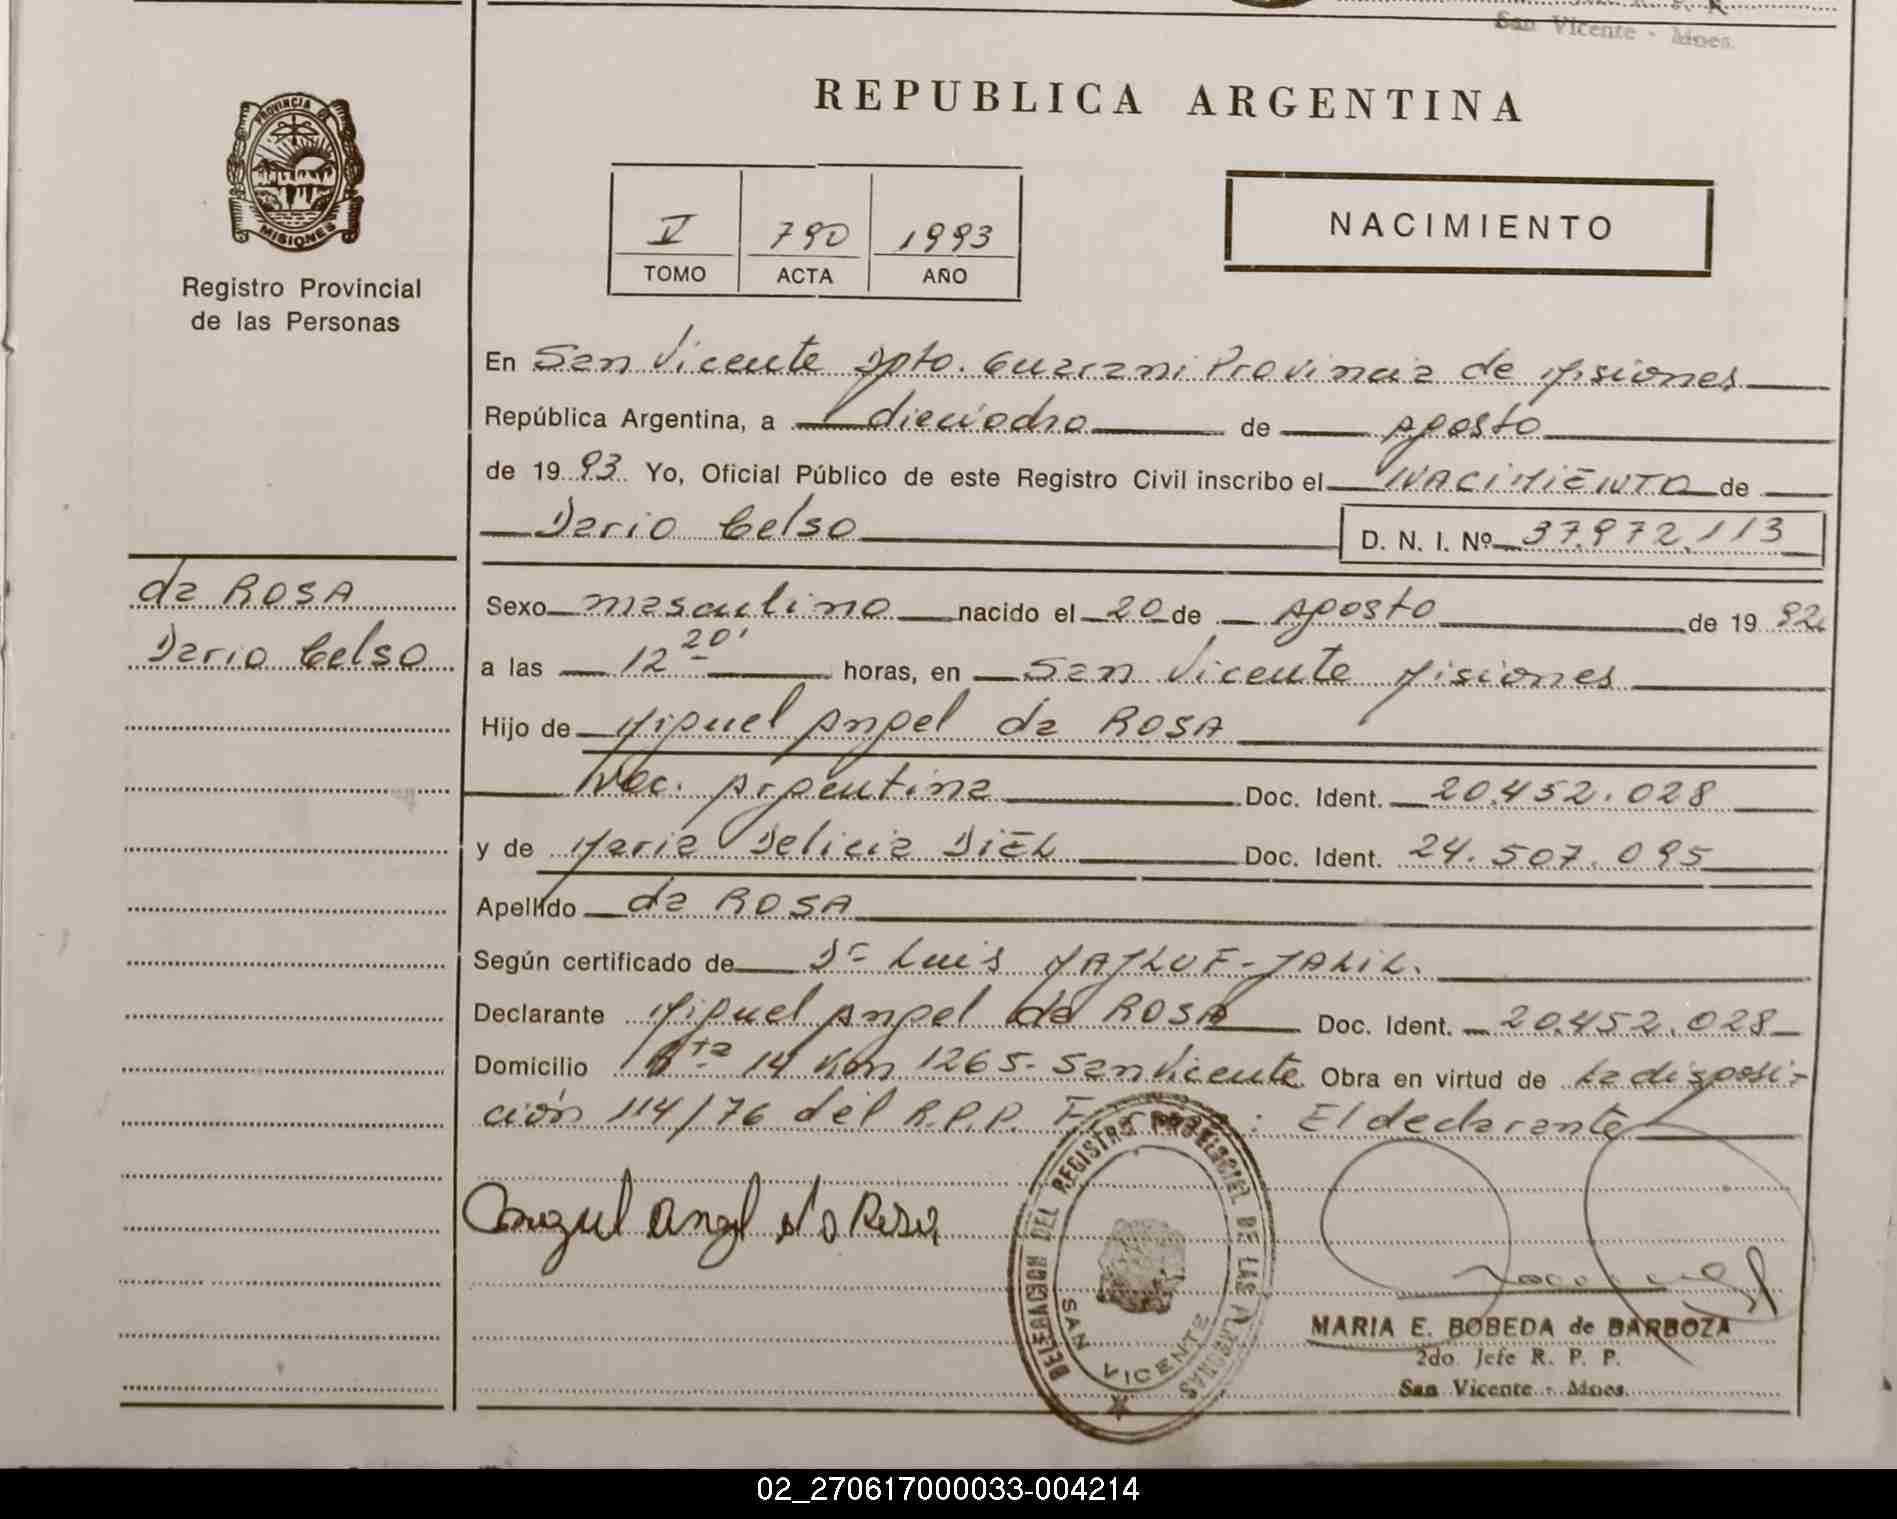 San Vicente - Mnes.
REPUBLICA ARGENTINA
PROVINCIA DE MISIONES
Registro Provincial
de las Personas
V 790 1993
TOMO ACTA AÑO
NACIMIENTO
En San Vicente Dpto. Guarani Provincia de Misiones
República Argentina, a dieciocho de Agosto
de 19 93 Yo, Oficial Público de este Registro Civil inscribo el NACIMIENTO de
Dario Celso D. N. I. Nº 37.972.113
da ROSA
Dario Celso
Sexo masculino nacido el 20 de Agosto de 19 92
a las 12 20' horas, en San Vicente Misiones
Hijo de Miguel Angel da ROSA
Nac. Argentina Doc. Ident. 20.452.028
y de Maria Delicia DIEL Doc. Ident. 24.507.095
Apellido da ROSA
Según certificado de Dr Luis YAJLUF-JALIL.
Declarante Miguel Angel da ROSA Doc. Ident. 20.452.028
Domicilio Rta 14 Km 1265- San Vicente Obra en virtud de la disposi-
ción 114/76 del R.P.P. : El declarante
Miguel Angel da Rosa
DELEGACION DEL REGISTRO PROVINCIAL DE LAS PERSONAS
SAN VICENTE
MARIA E. BOBEDA de BARBOZA
2do. Jefe R. P. P.
San Vicente - Mnes.
02_270617000033-004214